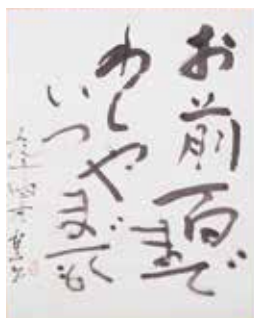 お前百まで
わしゃ
いつまでも